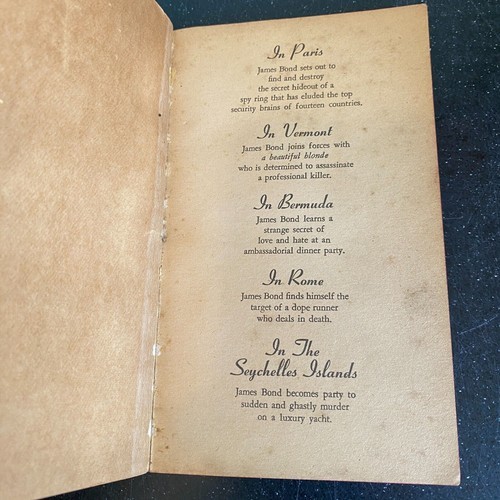 In Paris
James Bond sets out to
find and destroy
the secret hideout of a
spy ring that has eluded the top
security brains of fourteen countries.
In Vermont
James Bond joins forces with
a beautiful blonde
who is determined to assassinate
a professional killer.
In Bermuda
James Bond learns a
strange secret of
love and hate at an
ambassadorial dinner party.
In Rome
James Bond finds himself the
target of a dope runner
who deals in death.
In The
Seychelles Islands
James Bond becomes party to
sudden and ghastly murder
on a luxury yacht.